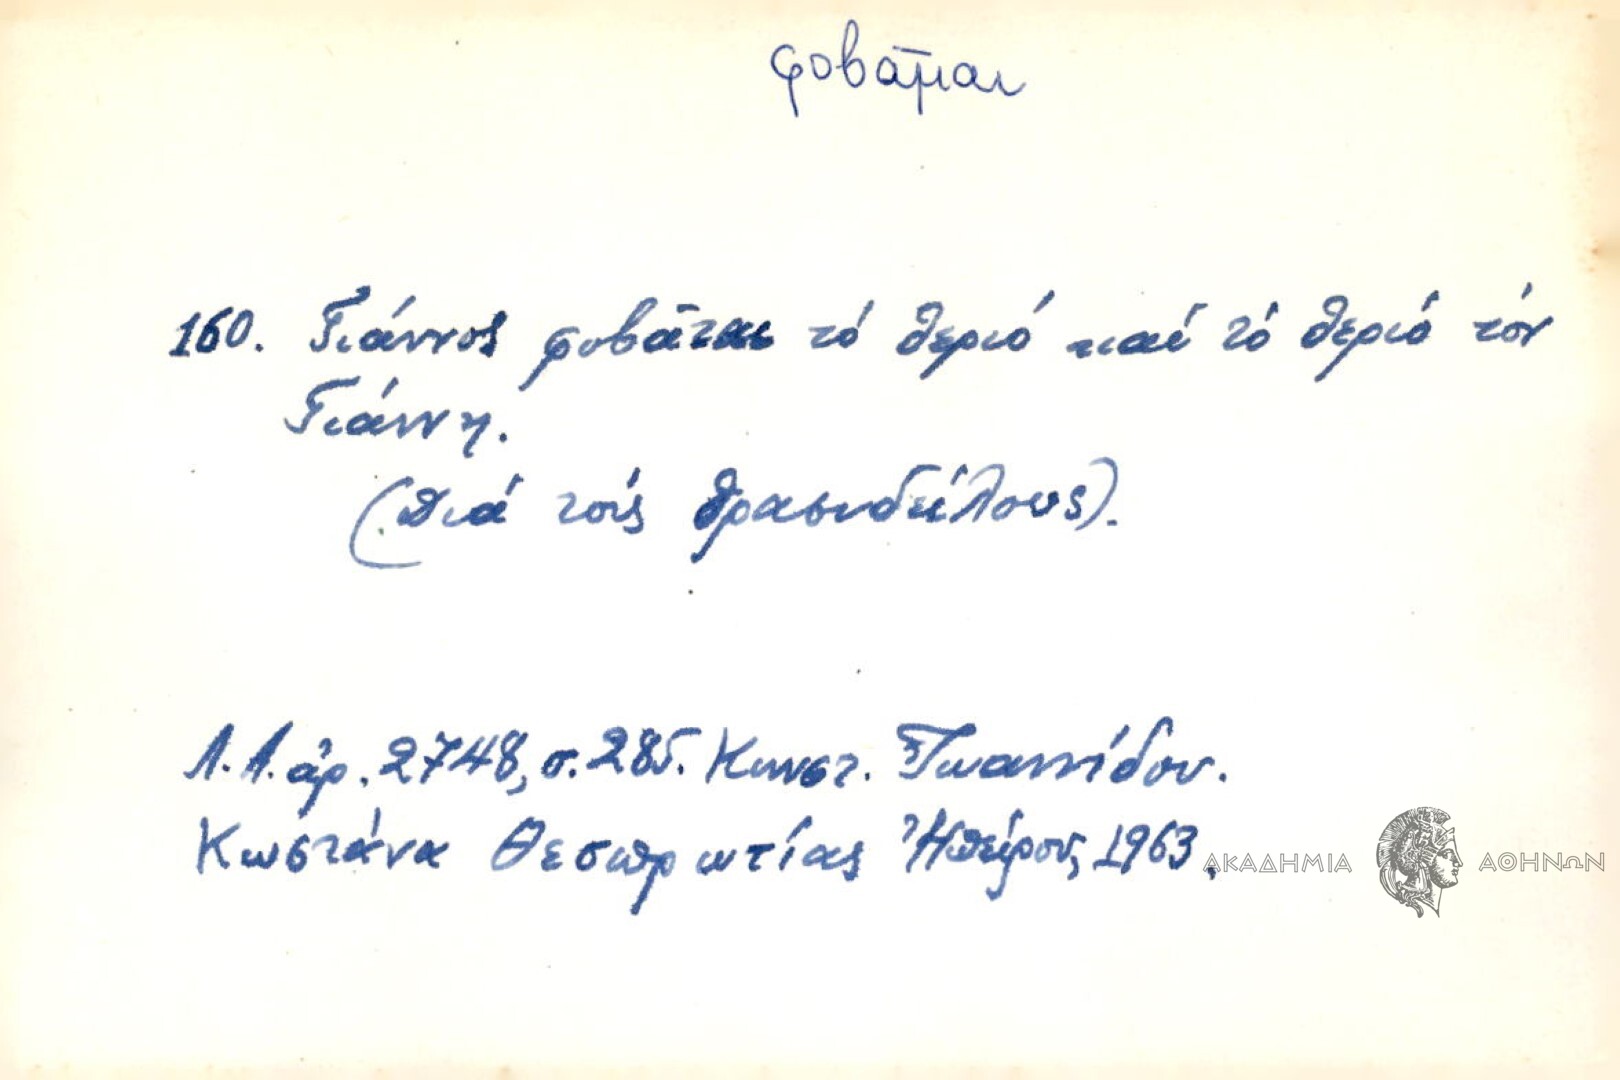 φοβᾶμαι
160. Γιάννος φοβᾶται τό θεριό καί τό θεριό τόν
Γιάννη.
(Διά τούς θρασυδείλους).
Λ.Α. ἀρ. 2748, σ. 285. Κωνστ. Ἰωαννίδου.
Κωστάνα Θεσπρωτίας Ἠπείρου, 1963.
ΑΚΑΔΗΜΙΑ ΑΘΗΝΩΝ